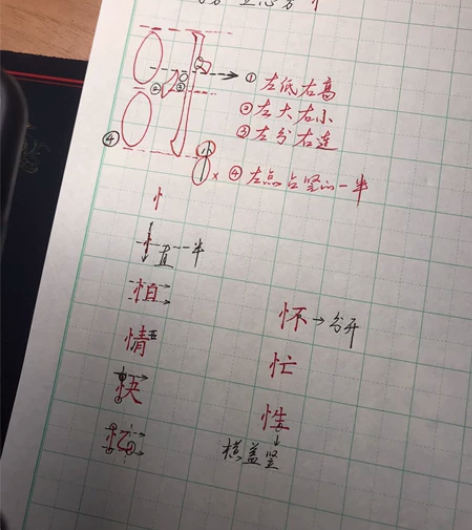 ① 左低右高
② 左大右小
③ 左分右连
④ 左点占竖的一半
忄
直 一半
怕
情
快
忆
怀 → 分开
忙
性
横盖竖